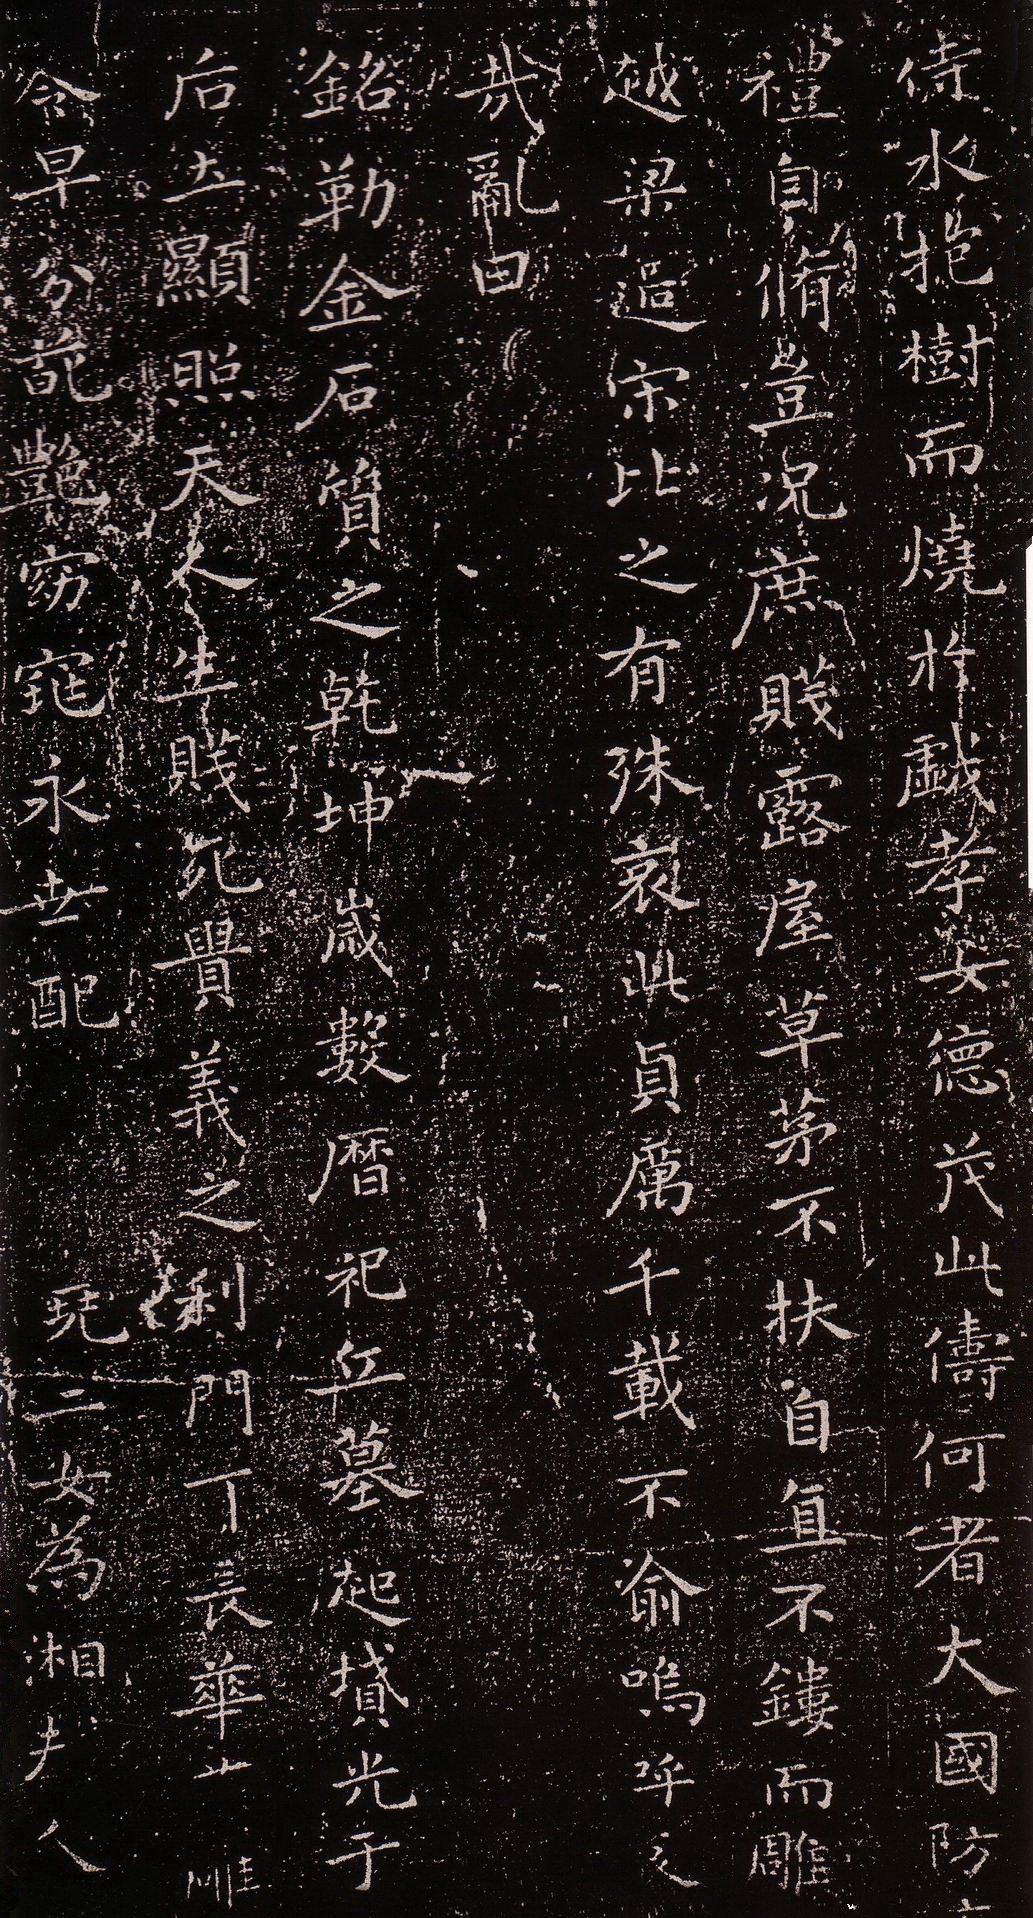 侍水抱樹而燒於戲孝女德茂此儔何者大國防
禮自脩豈況庶賤露屋草茅不扶自直不鏤而雕
越梁過宋比之有殊哀此貞厲千載不渝嗚呼
哀哉亂曰
銘勒金石質之乾坤歲數曆祀丘墓起墳光于
后土顯照天人生賤死貴義之利門何悵華落雕
零早分葩艷窈窕永世配神若堯二女為湘夫人